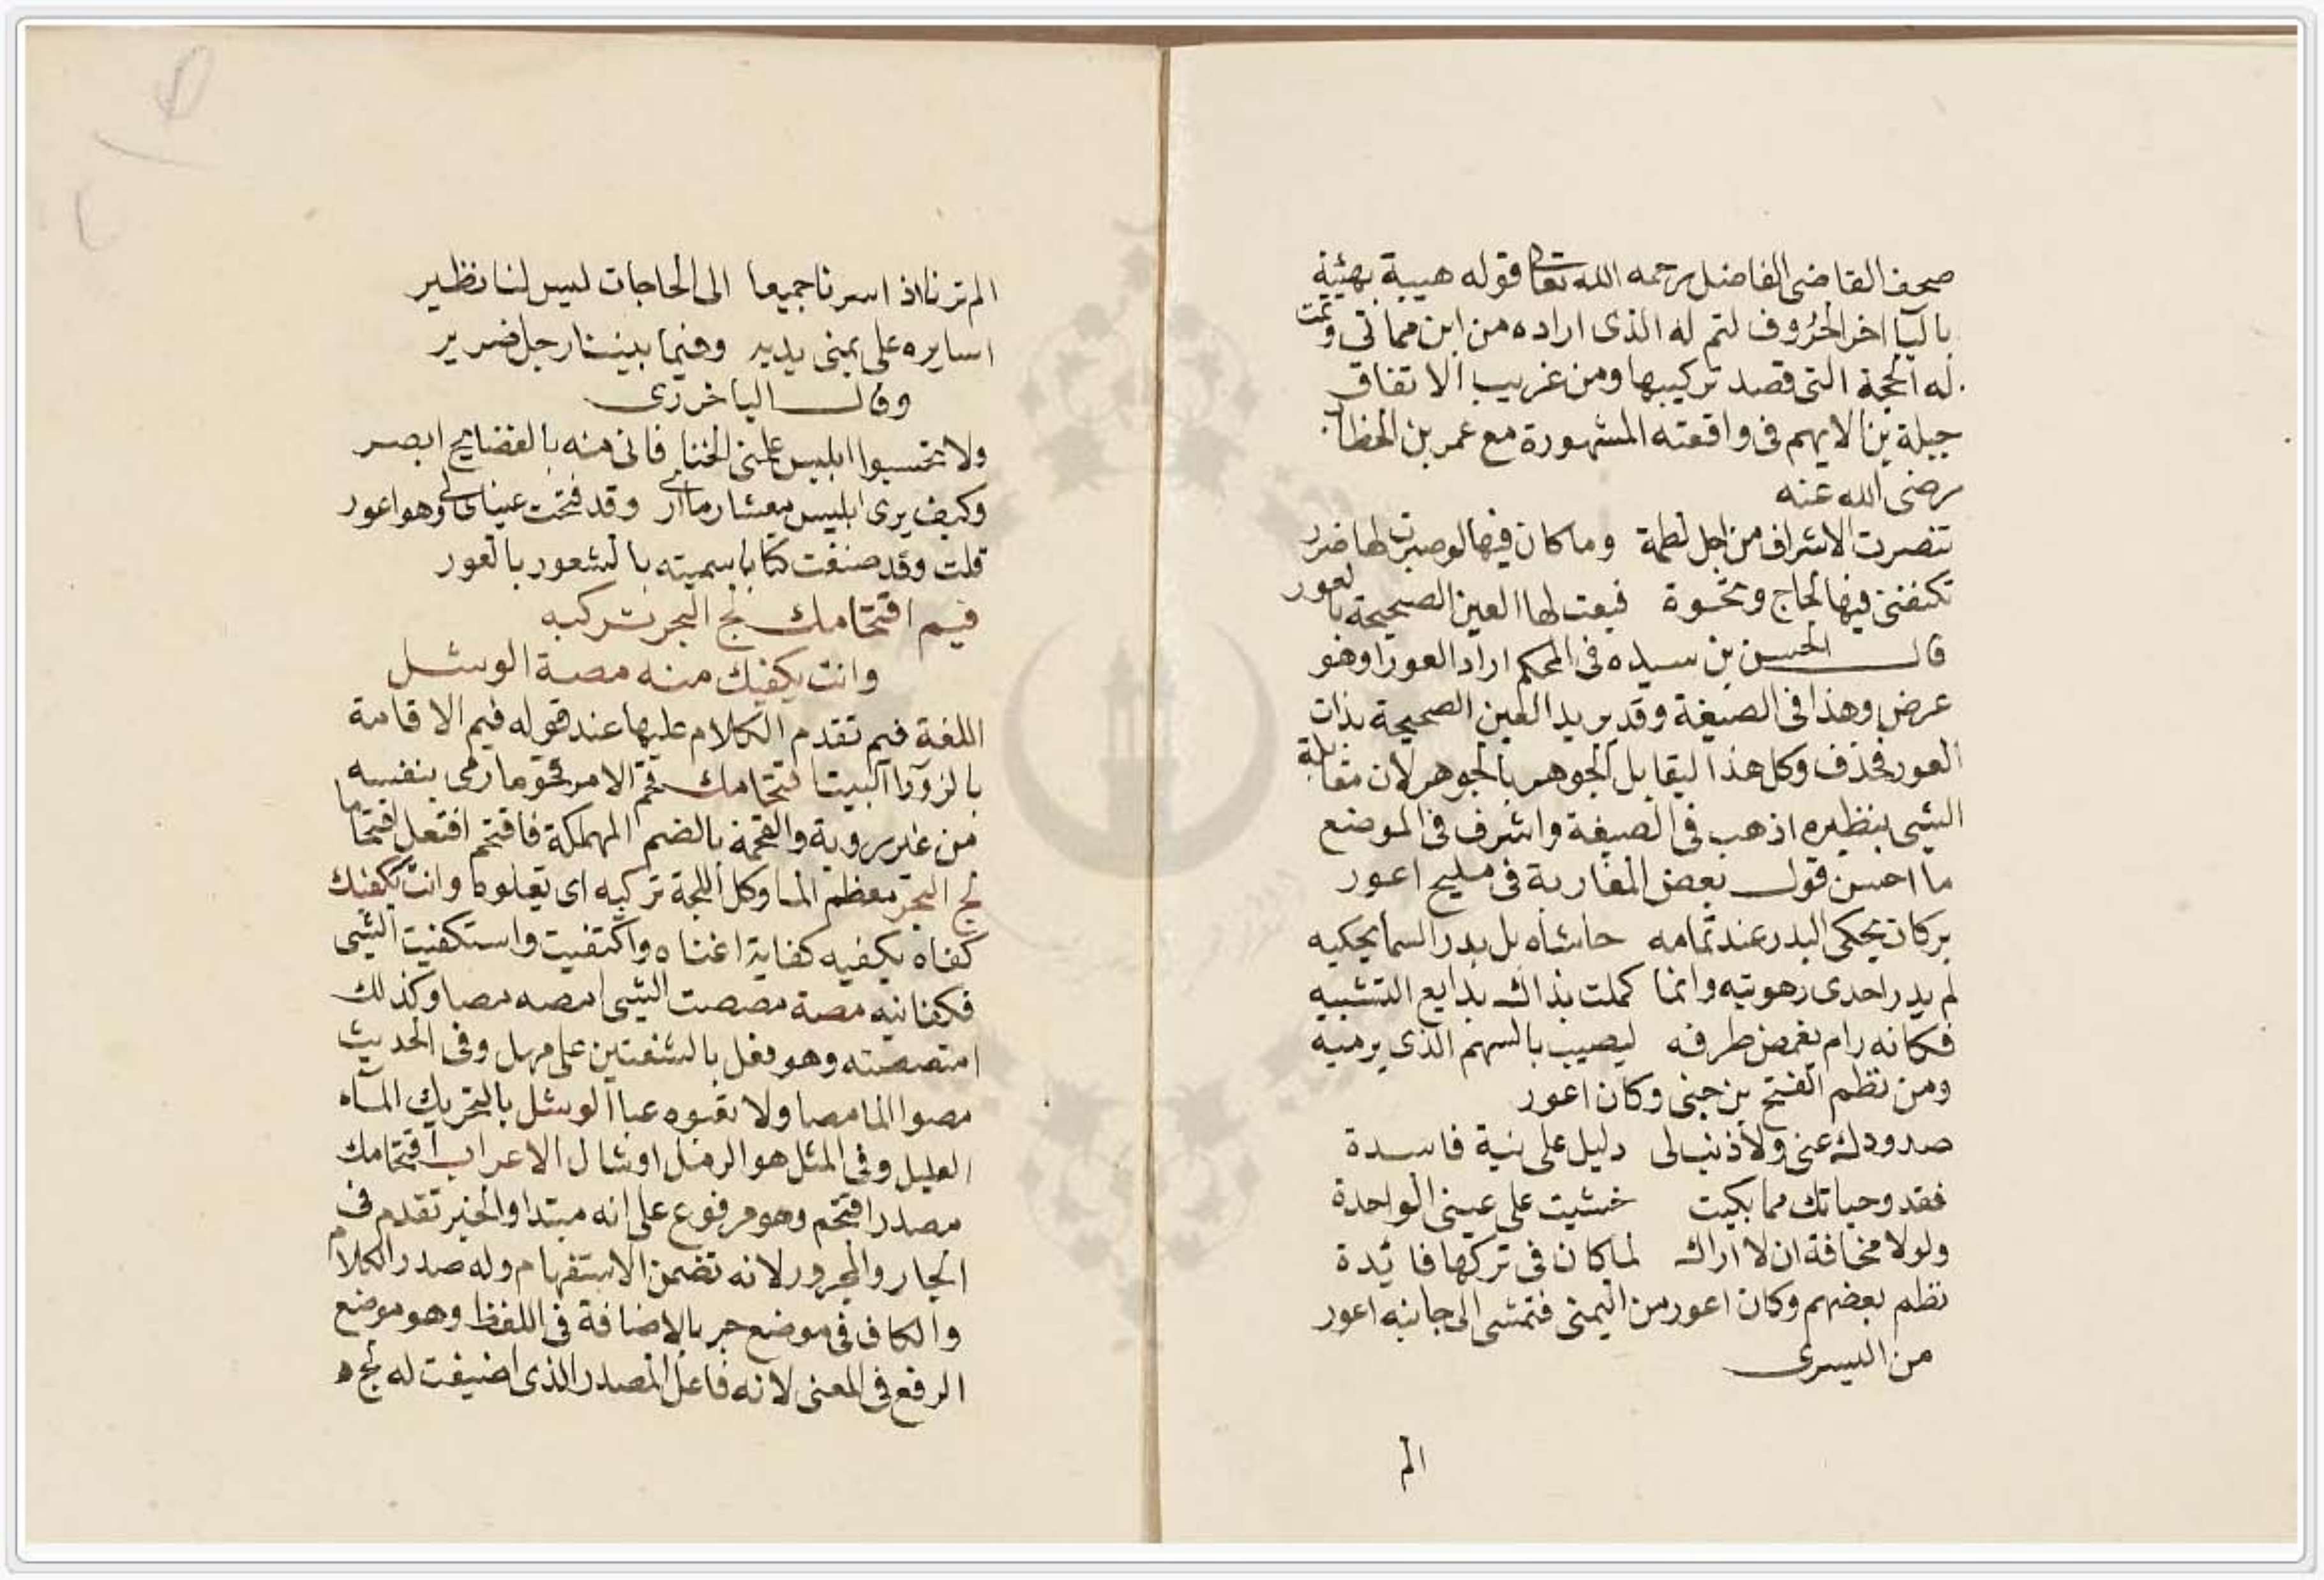 صحف القاضى الفاضل رحمه الله تعالى قوله هيبة بهيئة
باليا اخر الحروف لتم له الذى اراده من ابن مماتي وتمت
له الحجة التى قصد تركيبها ومن غريب الاتفاق
جبلة بن الايهم فى واقعته المشهورة مع عمر بن الخطاب
رضى الله عنه
تنصرت الاشراف من اجل لطمة وما كان فيها لو صبرت لها ضرر
تكنفنى فيها لجاج ونخوة فبعت لها العين الصحيحة بالعور
قال الحسن بن سيده فى المحكم اراد العورا وهو
عرض وهذا فى الصيغة وقد يريد العين الصحيحة بذات
العور فحذف وكل هذا ليقابل الجوهر بالجوهر لان مقابلة
الشى بنظيره اذهب فى الصيغة واشرف فى الموضع
ما احسن قول بعض المغاربة فى مليح اعور
بركان يحكى البدر عند تمامه حاشاه بل بدر السما يحكيه
لم يدر احدى زهوتيه وانما كملت بذاك بدايع التشبيه
فكانه رام يغمض طرفه ليصيب بالسهم الذى يرميه
ومن نظم الفتح بن جنى وكان اعور
صدودك عنى ولا ذنب لى دليل على نية فاسدة
فقد وحياتك مما بكيت خشيت على عينى الواحدة
ولولا مخافة ان لا اراك لما كان فى تركها فائدة
نظم بعضهم وكان اعور من اليمنى فتمشى الى جانبه اعور
من اليسرى
الم
الم ترنا اذ اسرنا جميعا الى الحاجات ليس لنا نظير
اسايره على يمنى يديه وفيما بيننا رجل ضرير
وقال الباخرزى
ولا تحسبوا ابليس علمنى الخنا فانى منه بالفضايح ابصر
وكيف يرى ابليس معشار ما ارى وقد فتحت عيناى لى وهو اعور
قلت وقد صنفت كتابا سميته بالشعور بالعور
فيم اقتحامك لج البحر تركبه
وانت يكفيك منه مصة الوشل
اللغة فيم تقدم الكلام عليها عند قوله فيم الاقامة
بالزورا البيت اقتحامك قحم الامر قحوما رمى بنفسه
من غير روية والقحمة بالضم المهلكة فاقتحم افتعل اقتحاما
لج البحر معظم الما وكل اللجة تركبه اى تعلوه وانت يكفيك
كفاه يكفيه كفاية اغناه واكتفيت واستكفيت الشى
فكفانيه مصة مصصت الشى امصه مصا وكذلك
امتصصته وهو فعل بالشفتين على مهل وفى الحديث
مصوا الما مصا ولا تعبوه عبا الوشل بالتحريك المآء
القليل وفى المثل هو الرمل اوشال الاعراب اقتحامك
مصدر اقتحم وهو مرفوع على انه مبتدا والخبر تقدم فى
الجار والمجرور لانه تضمن الاستفهام وله صدر الكلام
والكاف فى موضع جر بالاضافة فى اللفظ وهو موضع
الرفع فى المعنى لانه فاعل المصدر الذى اضيفت له لج